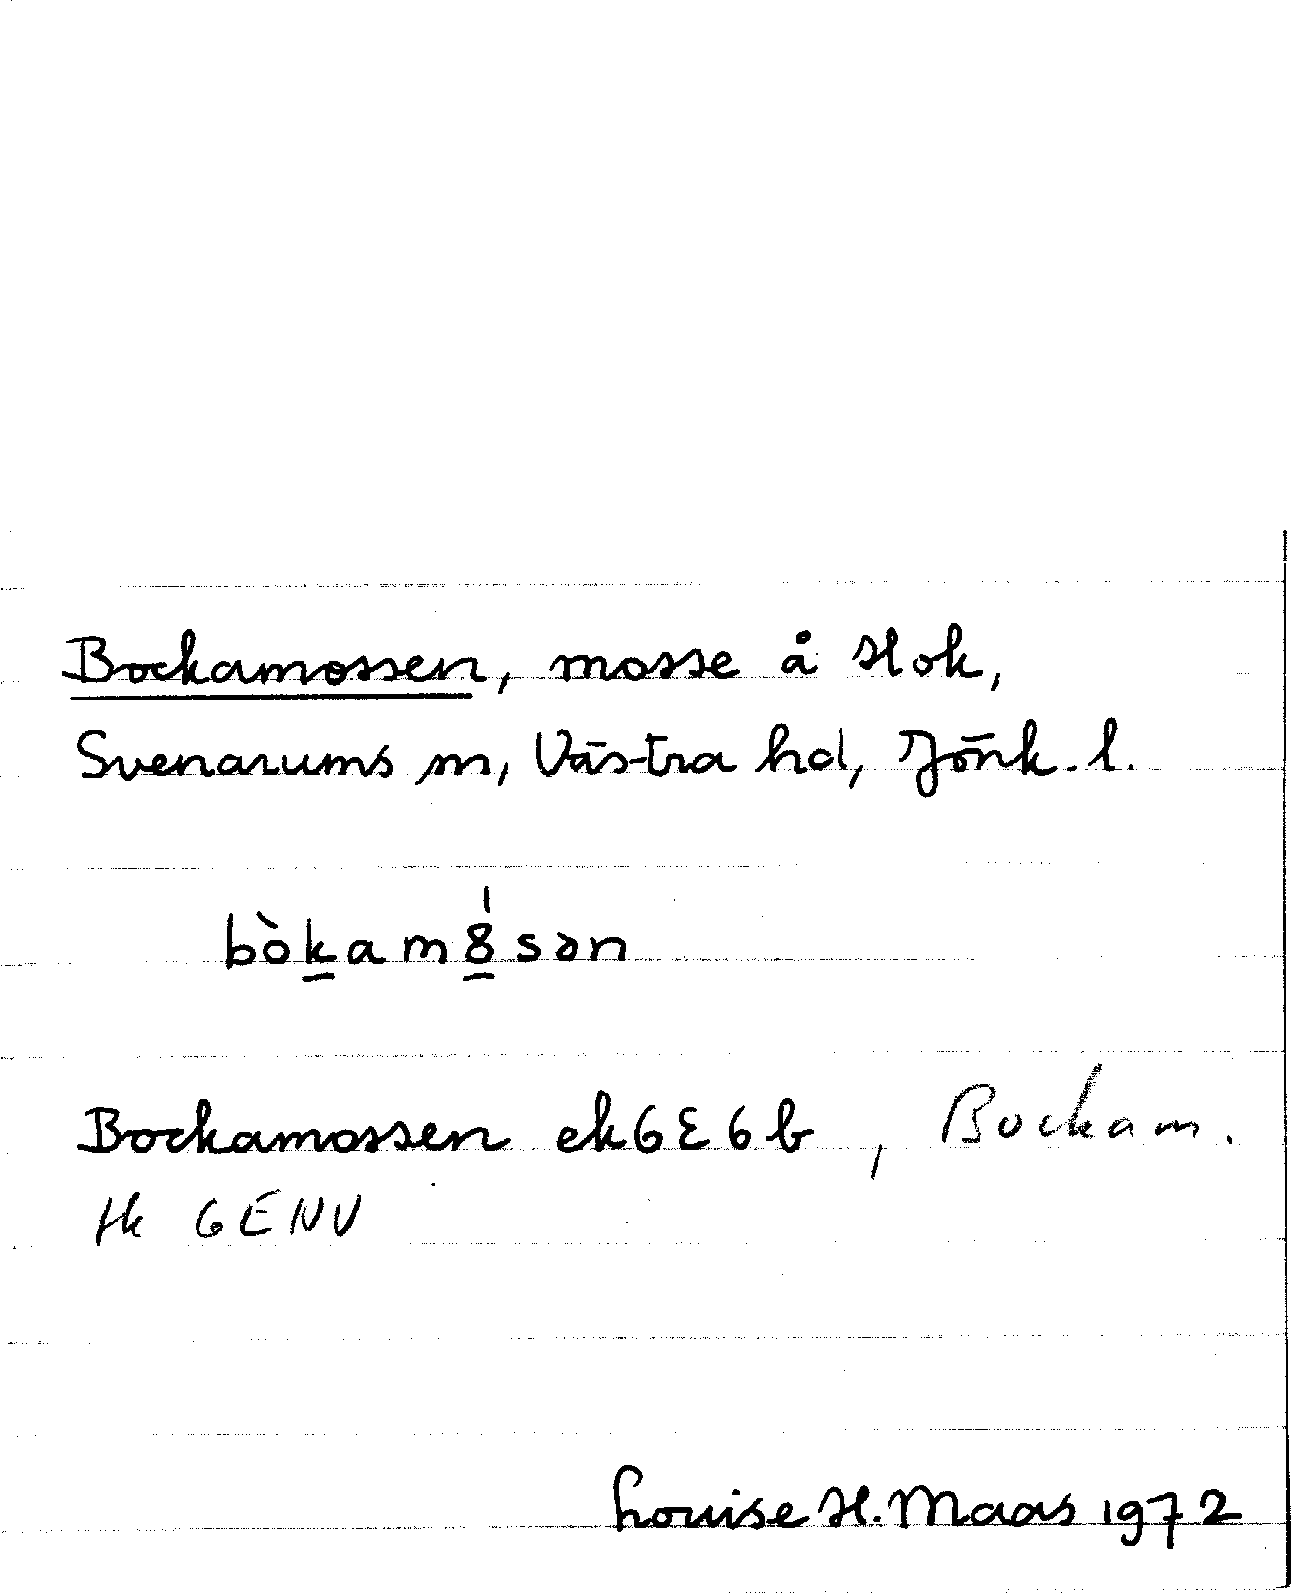 Bockamossen, mosse å Hok,
Svenarums sn, Västra hd, Jönk. l.
bòkam8́sən
Bockamossen ek6E6b, Bockam.
tk 6ENV
Louise H. Maas 1972